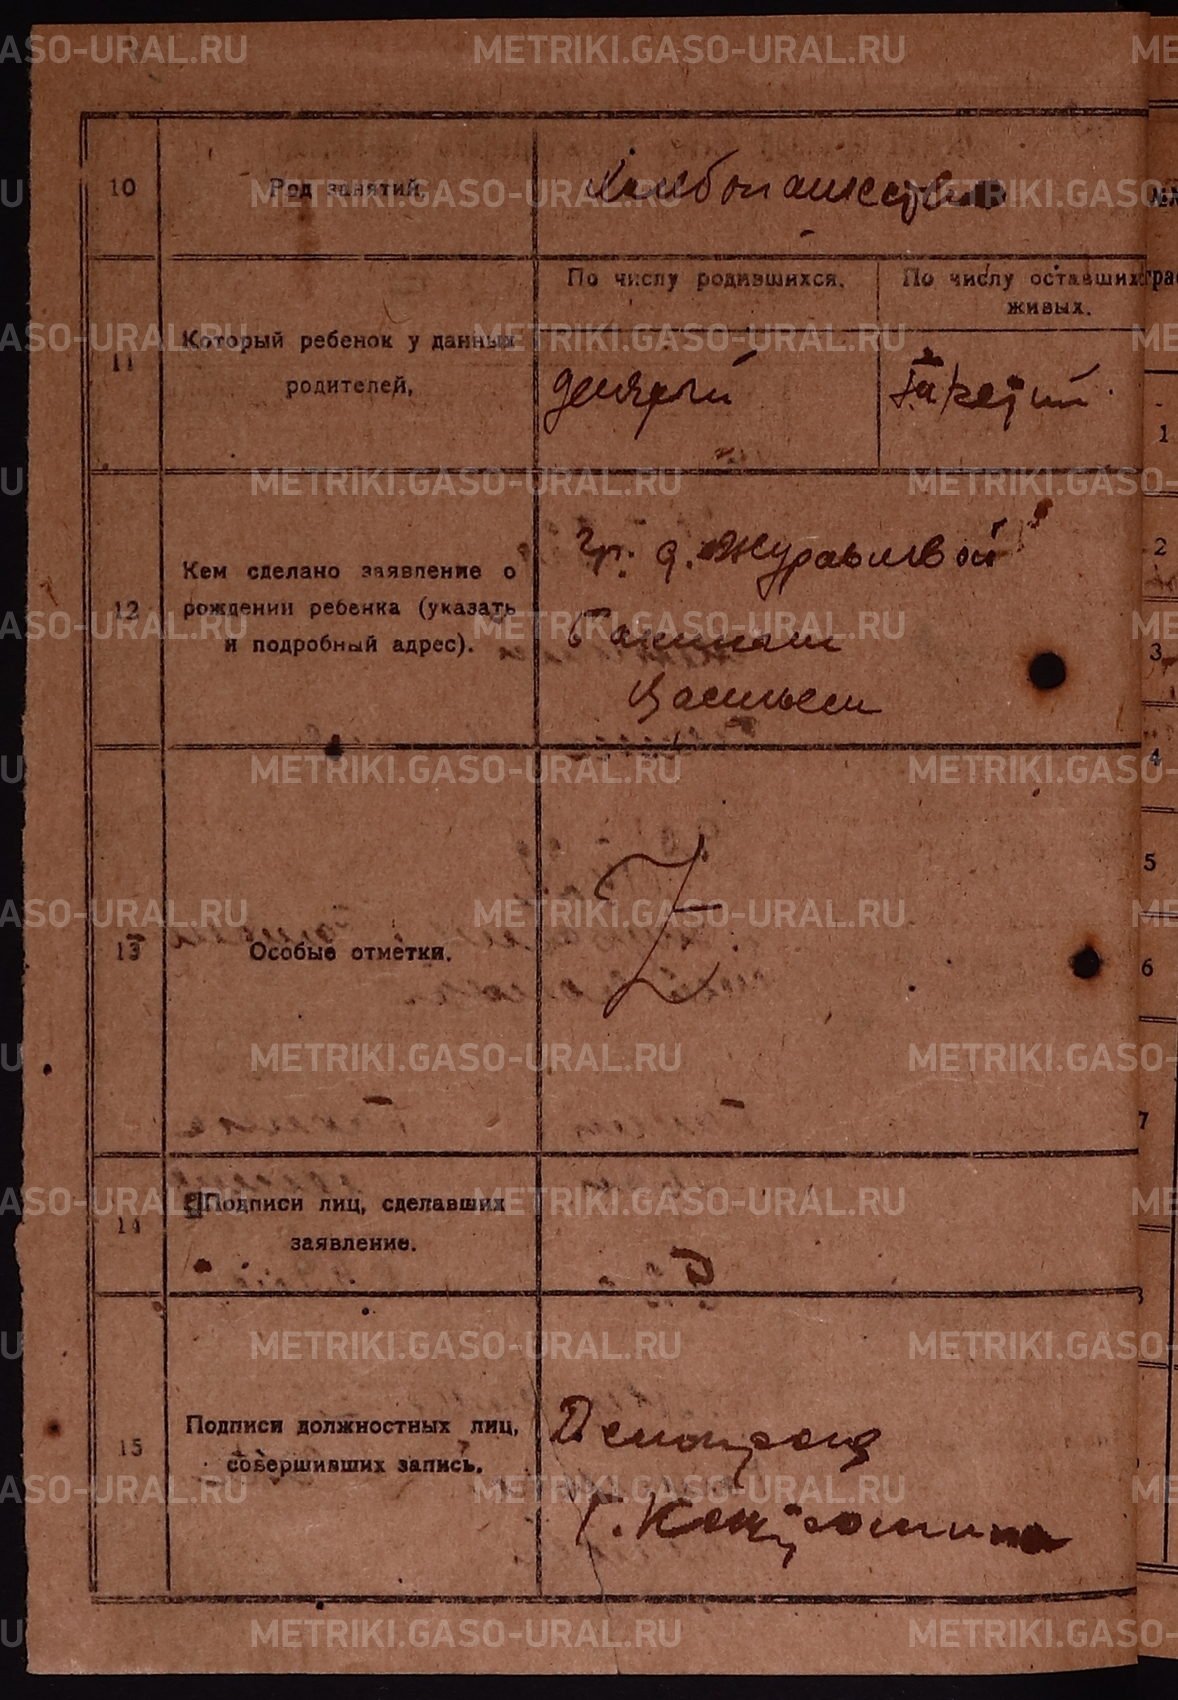 METRIKI.GASO-URAL.RU
10
Род занятий.
Хлебопашество
11
Который ребенок у данных
родителей,
По числу родившихся.
По числу оставшихся
живых.
12
Кем сделано заявление о
рождении ребенка (указать
и подробный адрес).
гр. д. Журавлевой
Васильем
13
Особые отметки.
14
Подписи лиц, сделавших
заявление.
15
Подписи должностных лиц,
совершивших запись.
Делопроиз
1
2
3
4
5
6
7